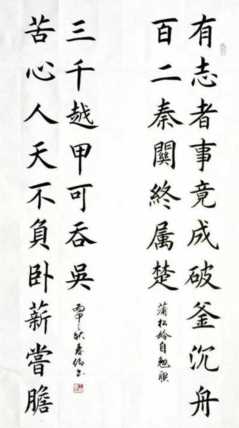 有志者事竟成破釜沉舟
百二秦關終属楚
蒲松龄自勉联
苦心人天不負卧薪嘗膽
三千越甲可吞吳
丙申秋